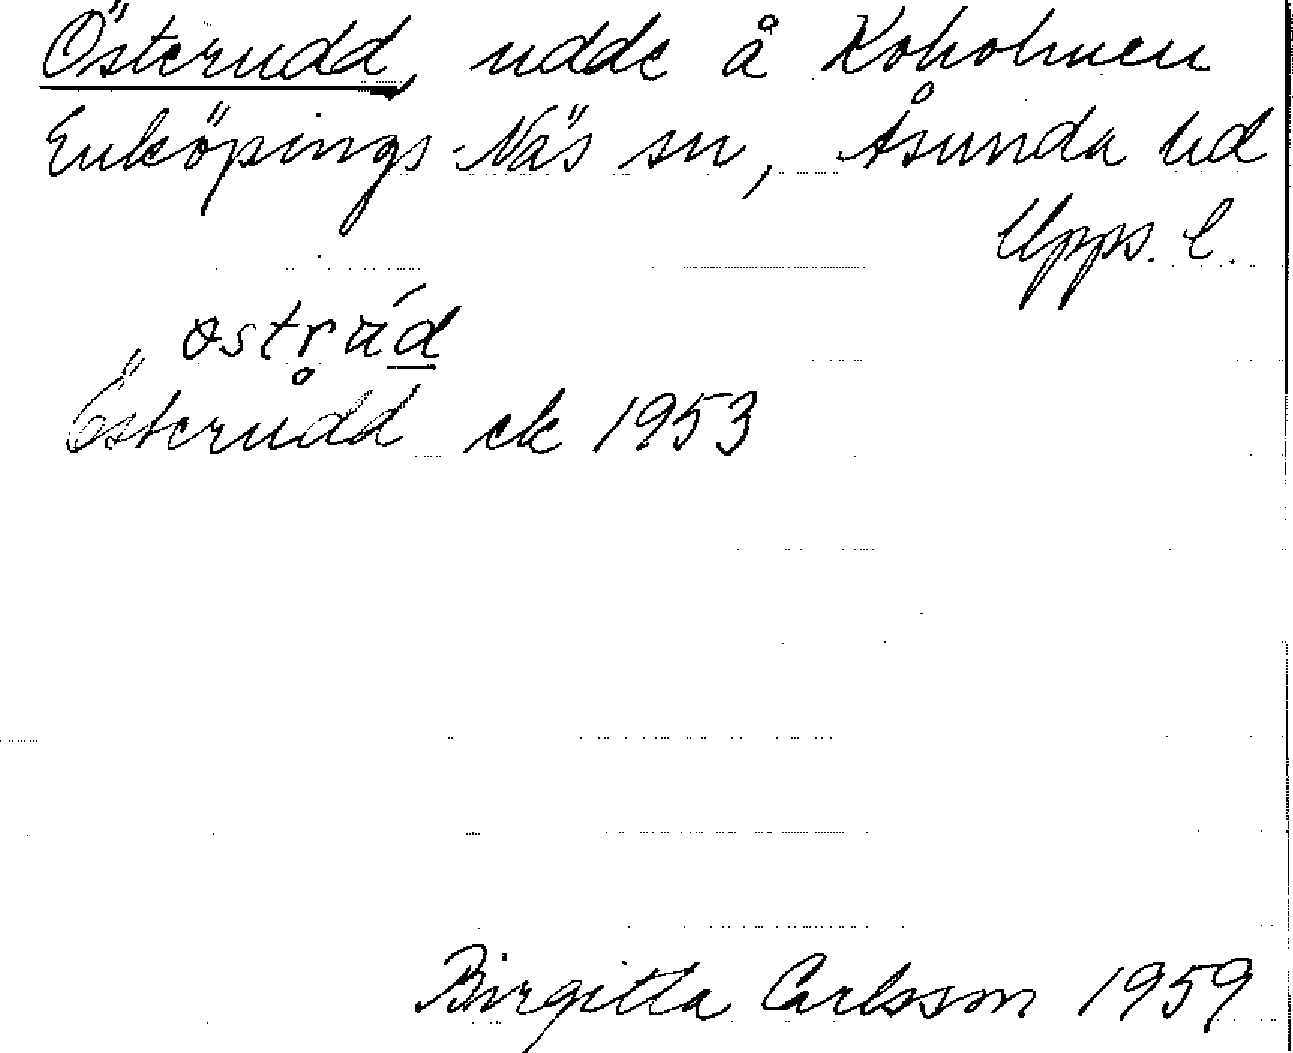 Österudd, udde å Koholmen
Enköpings-Näs sn, Åsunda hd
Upps. l.
Österudd ek 1953
Birgitta Carlsson 1959